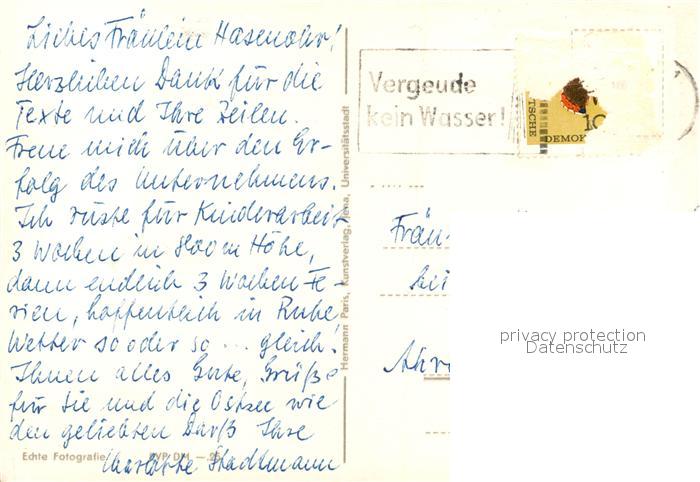 Liebes Fräulein Hasenohr!
Herzlichen Dank für die
Texte und Ihre Zeilen.
Freue mich über den Er-
folg des Unternehmens.
Ich rüste für Kinderarbeit
3 Wochen in 800 m Höhe,
dann endlich 3 Wochen Fe-
rien, hoffentlich in Ruhe
Wetter so oder so ... gleich!
Ihnen alles Gute, Grüße
für Sie und die Ostsee wie
den geliebten Darß Ihre
Charlotte Stadlmann
Echte Fotografie
DM —.25
Hermann Paris, Kunstverlag, Jena, Universitätsstadt
Vergeude
kein Wasser!
TSCHE
DEMOK
10
Fräu
bei
Ahr
privacy protection
Datenschutz